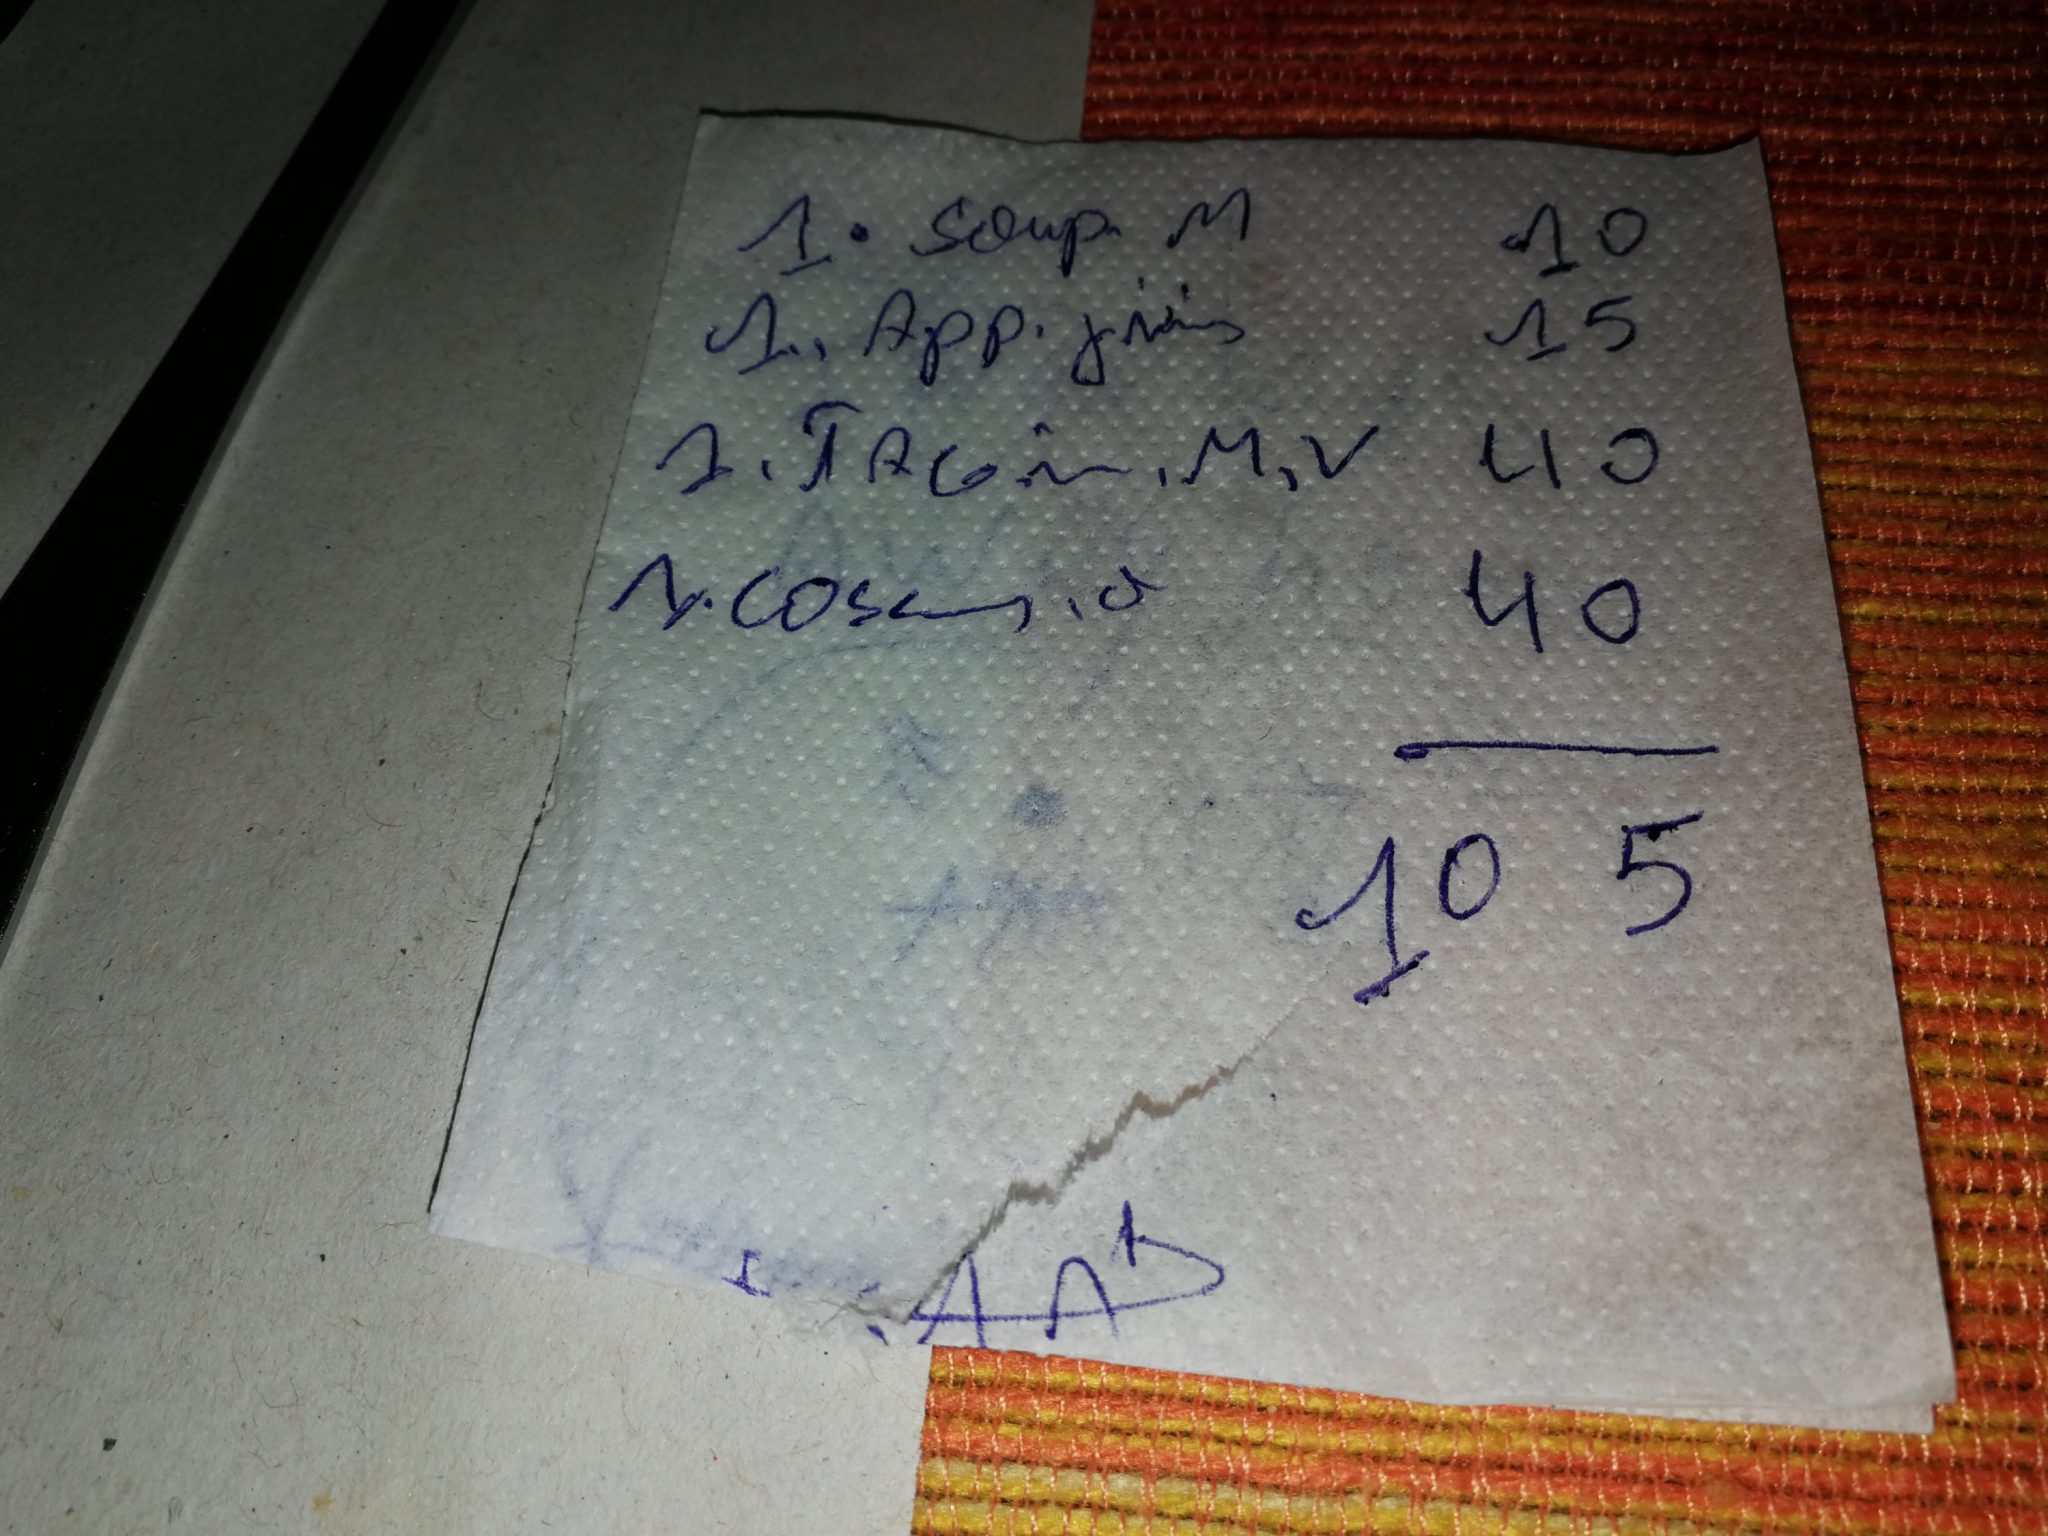 1. Soup. M 10
1. App. juis 15
1. TAGin. M, V 40
1. 40
105